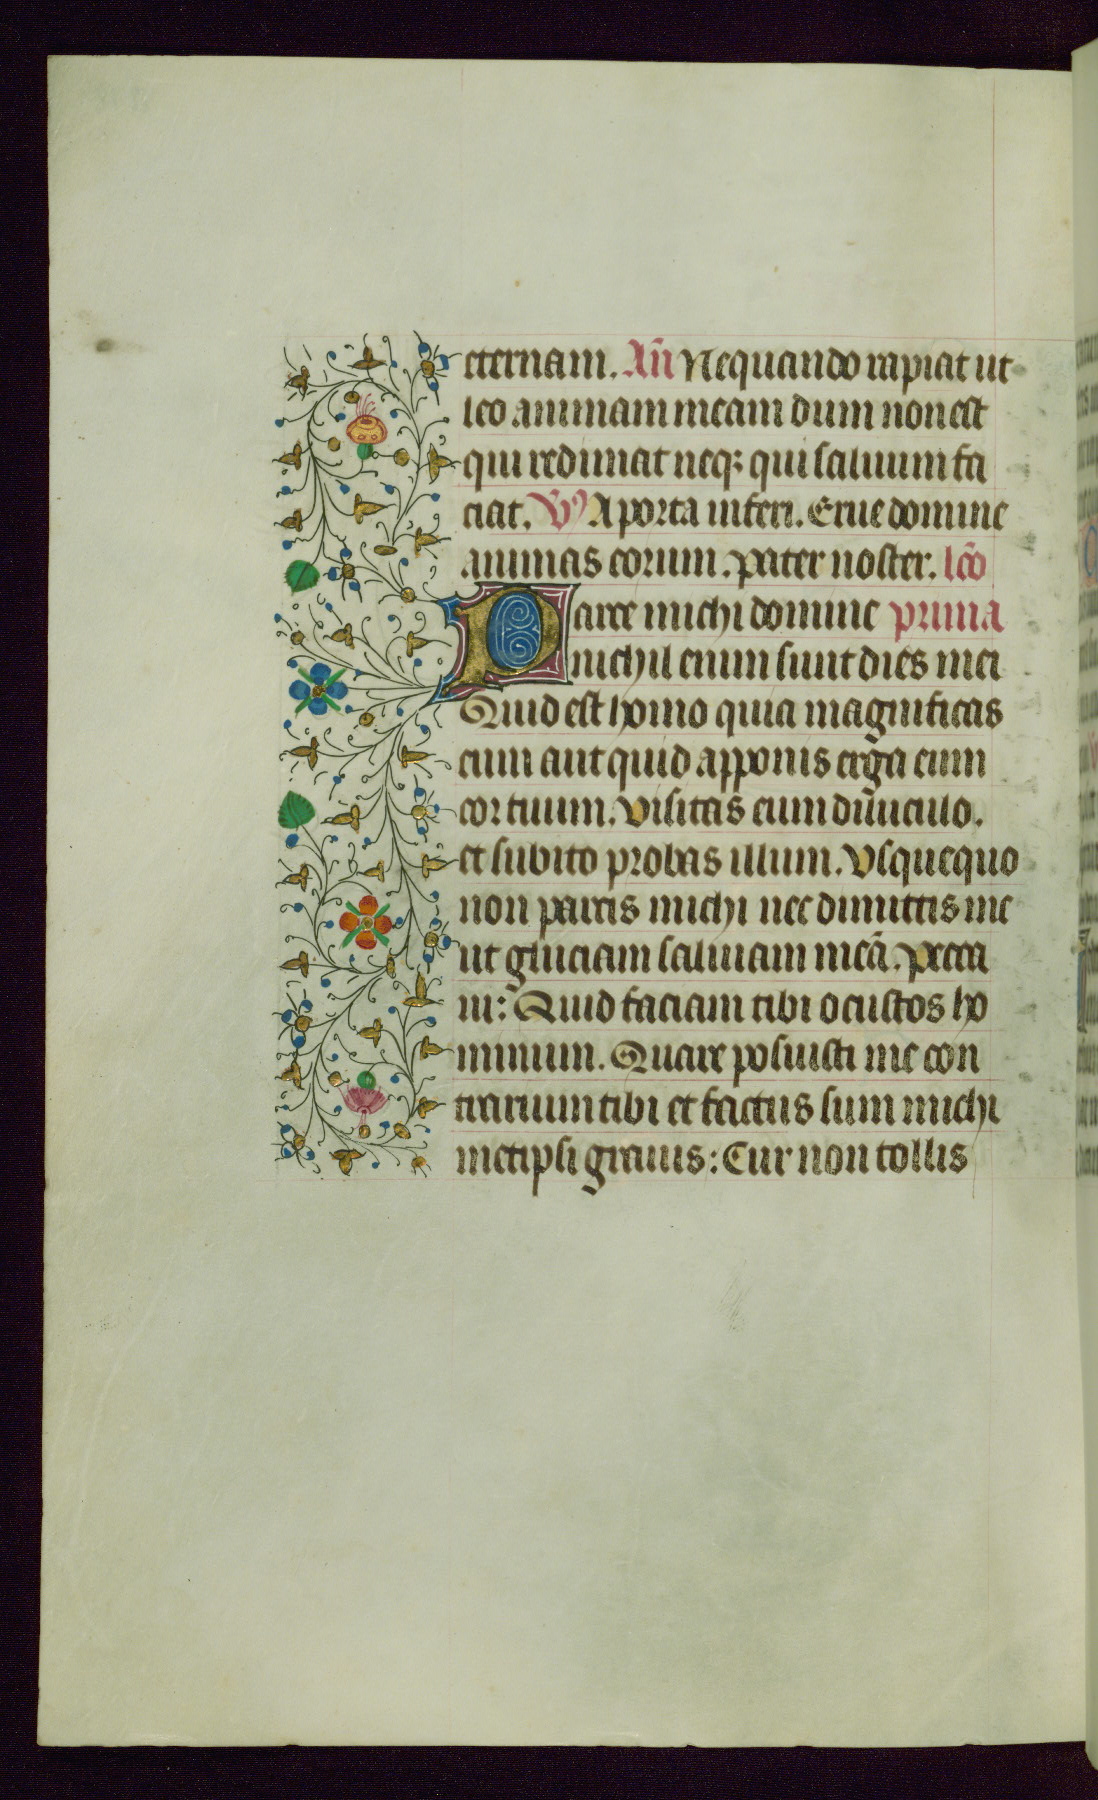 eternam. An̄ Nequando rapiat ut
leo animam meam dum non est
qui redimat neq; qui saluum fa
ciat. V̄ A porta inferi. Erue domine
animas eorum. pater noster. lc̄o
Parce michi domine prima
nichil enim sunt dies mei
Quid est homo quia magnificas
eum aut quid apponis erga eum
cor tuum. Visitas eum diluculo.
et subito probas illum. Vsquequo
non parcis michi nec dimittis me
ut gluciam saliuam meā. pecca
ui: Quid faciam tibi o custos ho
minum. Quare posuisti me con
trarium tibi et factus sum michi
metipsi grauis: Cur non tollis